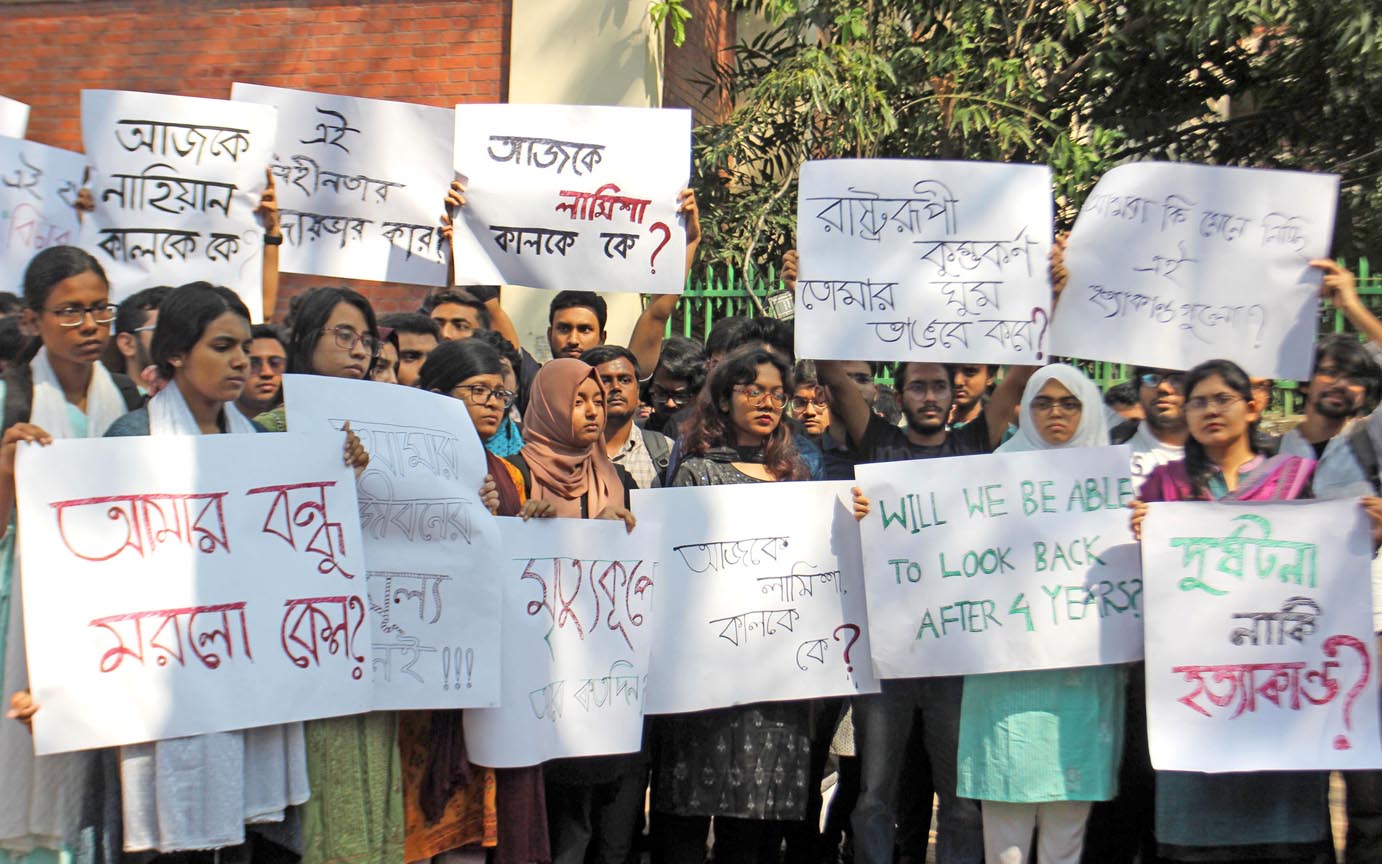 এই
আজকে
নাহিয়ান
কালকে কে
এই
দায়ভার কার
আজকে
লামিশা
কালকে কে?
রাষ্ট্ররূপী
কুম্ভকর্ণ
তোমার ঘুম
ভাঙবে কবে?
আমরা কি মেনে নিচ্ছি
এই
হত্যাকাণ্ডগুলো?
আমার বন্ধু
মরলো কেন?
আমার
জীবনের
মূল্য
নেই!!!
মৃত্যুকূপে
আর কতদিন?
আজকে
লামিশা,
কালকে
কে?
WILL WE BE ABLE
TO LOOK BACK
AFTER 4 YEARS?
দুর্ঘটনা
নাকি
হত্যাকাণ্ড?